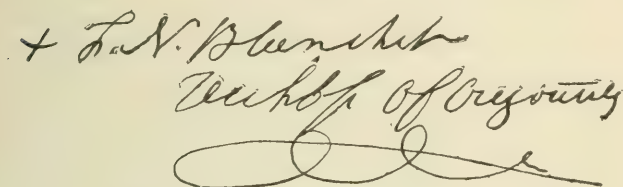 + F. N. Blanchet
Archbp of Oregon City